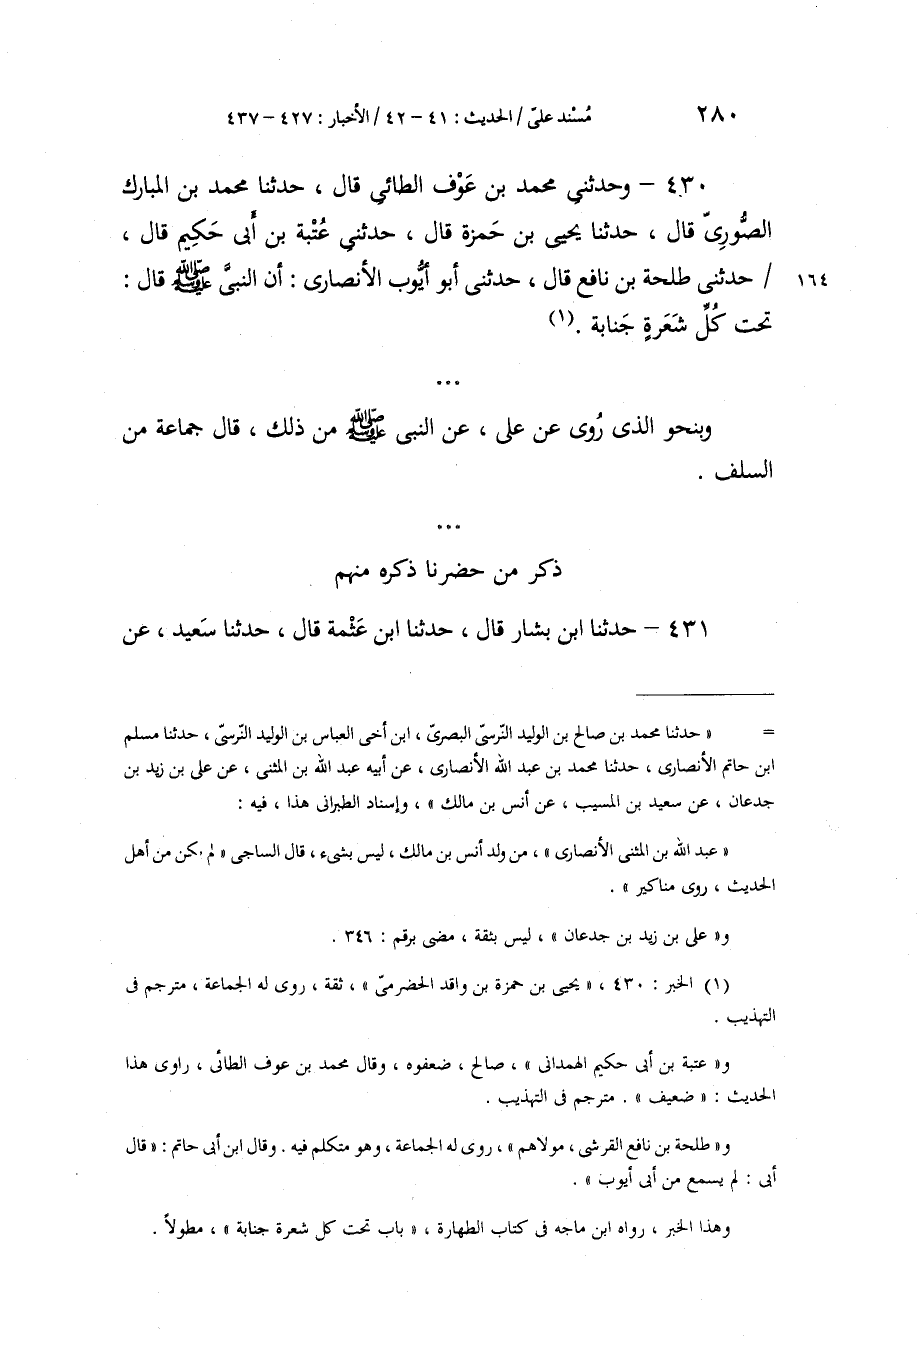 ٢٨٠
مُسْند علىّ / الحديث : ٤١ - ٤٢ / الأخبار : ٤٢٧ - ٤٣٧
٤٣٠ - وحدثني محمد بن عَوْف الطائي قال ، حدثنا محمد بن المبارك
الصُّورىّ قال ، حدثنا يحيى بن حَمزة قال ، حدثني عُتْبة بن أَبى حَكِيم قال ،
١٦٤ / حدثنى طلحة بن نافع قال ، حدثنى أبو أيُّوب الأنصارى : أن النبىَّ ﷺ قال :
تحت كُلِّ شَعَرةٍ جَنابة . (١)
...
وبنحو الذى رُوى عن على ، عن النبى ﷺ من ذلك ، قال جماعة من
السلف .
...
ذكر من حضرنا ذكره منهم
٤٣١ - حدثنا ابن بشار قال ، حدثنا ابن عَثْمة قال ، حدثنا سَعيد ، عن
= « حدثنا محمد بن صالح بن الوليد النّرسىّ البصرىّ ، ابن أخى العباس بن الوليد النّرسىّ ، حدثنا مسلم
ابن حاتم الأنصارى ، حدثنا محمد بن عبد الله الأنصارى ، عن أبيه عبد الله بن المثنى ، عن على بن زيد بن
جدعان ، عن سعيد بن المسيب ، عن أنس بن مالك » ، وإسناد الطبرانى هذا ، فيه :
« عبد الله بن المثنى الأنصارى » ، من ولد أنس بن مالك ، ليس بشىء ، قال الساجى « لم يكن من أهل
الحديث ، روى مناكير » .
و« على بن زيد بن جدعان » ، ليس بثقة ، مضى برقم : ٣٤٦ .
(١) الخبر : ٤٣٠ ، « يحيى بن حمزة بن واقد الحضرمىّ » ، ثقة ، روى له الجماعة ، مترجم فى
التهذيب .
و« عتبة بن أبى حكيم الهمدانى » ، صالح ، ضعفوه ، وقال محمد بن عوف الطائى ، راوى هذا
الحديث : « ضعيف » . مترجم فى التهذيب .
و« طلحة بن نافع القرشى ، مولاهم » ، روى له الجماعة ، وهو متكلم فيه . وقال ابن أبى حاتم : « قال
أبى : لم يسمع من أبى أيوب » .
وهذا الخبر ، رواه ابن ماجه فى كتاب الطهارة ، « باب تحت كل شعرة جنابة » ، مطولاً .